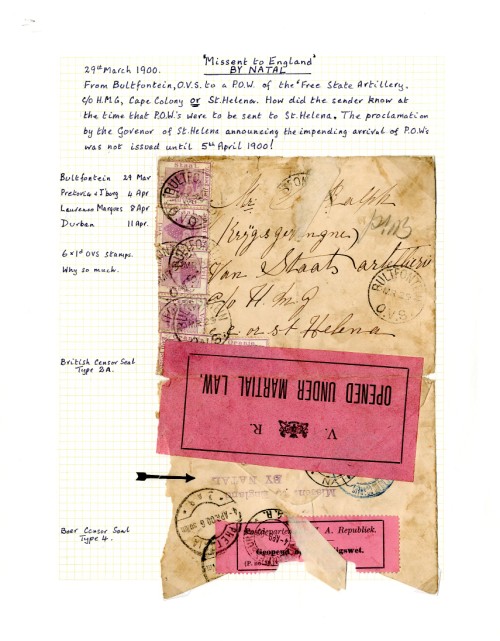 "Missent to England"
BY NATAL
29th March 1900.
From Bultfontein, O.V.S. to a P.O.W. of the "Free State Artillery.
c/o H.M.G, Cape Colony or St.Helena. How did the sender know at
the time that P.O.W's were to be sent to St.Helena. The proclamation
by the Govenor of St.Helena announcing the impending arrival of P.O.W's
was not issued until 5th April 1900!
Bultfontein 29 Mar
Pretoria & Jburg 4 Apr
Laurenco Marques 8 Apr
Durban 11 Apr.
6 x 1d OVS stamps.
Why so much.
British Censor Seal
Type 2A.
Boer Censor Seal
Type 4.
Mr. Ralph
Krygsgevangne
Van Staats artillerie
c/o H.M.G
C.C. or St Helena
BULTFONTEIN
O.V.S.
OPENED UNDER MARTIAL LAW.
V. R.
Missent to England
BY NATAL
4 APR 00
A. Republiek.
Geopend